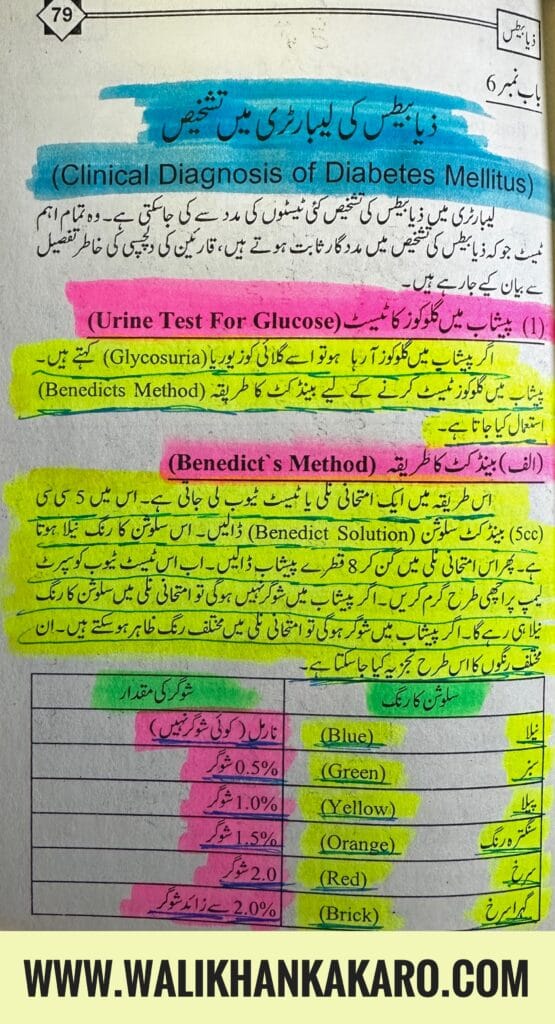 79
ذیابیطس
باب نمبر 6
ذیابیطس کی لیبارٹری میں تشخیص
(Clinical Diagnosis of Diabetes Mellitus)
لیبارٹری میں ذیابیطس کی تشخیص کئی ٹیسٹوں کی مدد سے کی جاسکتی ہے۔ وہ تمام اہم
ٹیسٹ جو کہ ذیابیطس کی تشخیص میں مددگار ثابت ہوتے ہیں، قارئین کی دلچسپی کی خاطر تفصیل
سے بیان کیے جارہے ہیں۔
(1) پیشاب میں گلوکوز کا ٹیسٹ (Urine Test For Glucose)
اگر پیشاب میں گلوکوز آ رہا ہو تو اسے گلائی کوزیوریا (Glycosuria) کہتے ہیں۔
پیشاب میں گلوکوز ٹیسٹ کرنے کے لیے بینڈکٹ کا طریقہ (Benedicts Method)
استعمال کیا جاتا ہے۔
(الف) بینڈکٹ کا طریقہ (Benedict`s Method)
اس طریقہ میں ایک امتحانی نلی یا ٹیسٹ ٹیوب لی جاتی ہے۔ اس میں 5 سی سی
(5cc) بینڈکٹ سلوشن (Benedict Solution) ڈالیں۔ اس سلوشن کا رنگ نیلا ہوتا
ہے۔ پھر اس امتحانی نلی میں گن کر 8 قطرے پیشاب ڈالیں۔ اب اس ٹیسٹ ٹیوب کو سپرٹ
لیمپ پر اچھی طرح گرم کریں۔ اگر پیشاب میں شوگر نہیں ہوگی تو امتحانی نلی میں سلوشن کا رنگ
نیلا ہی رہے گا۔ اگر پیشاب میں شوگر ہوگی تو امتحانی نلی میں مختلف رنگ ظاہر ہوسکتے ہیں۔ ان
مختلف رنگوں کا اس طرح تجزیہ کیا جاسکتا ہے۔
سلوشن کا رنگ شوگر کی مقدار
نیلا (Blue) نارمل (کوئی شوگر نہیں)
سبز (Green) 0.5% شوگر
پیلا (Yellow) 1.0% شوگر
سنگترہ رنگ (Orange) 1.5% شوگر
سرخ (Red) 2.0 شوگر
گہرا سرخ (Brick) 2.0% سے زائد شوگر
WWW.WALIKHANKAKARO.COM